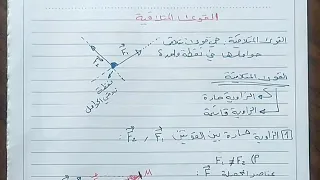 القوى المتلاقية
القوى المتلاقية: هي قوى تتلاقى
حواملها في نقطة واحدة
F₁
F₂
نقطة
تلاقي الحوامل
القوى المتلاقية
الزاوية حادة
الزاوية قائمة
1 الزاوية حادة بين القوتين F₁ , F₂ :
F₁ ≠ F₂ (P
عناصر المحصلة F
M